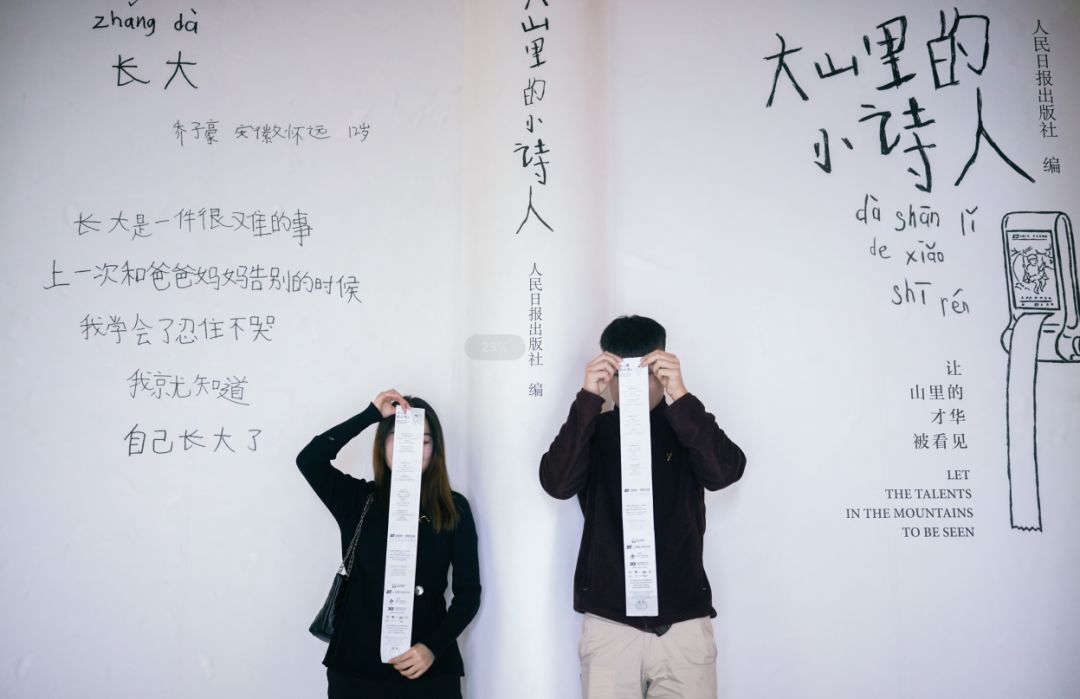 zhǎng dà
长大
乔子豪 安徽怀远 12岁
长大是一件很难的事
上一次和爸爸妈妈告别的时候
我学会了忍住不哭
我就知道
自己长大了
大山里的小诗人
人民日报出版社 编
25%
大山里的
小诗人
dà shān lǐ
de xiǎo
shī rén
人民日报出版社 编
让
山里的
才华
被看见
LET
THE TALENTS
IN THE MOUNTAINS
TO BE SEEN